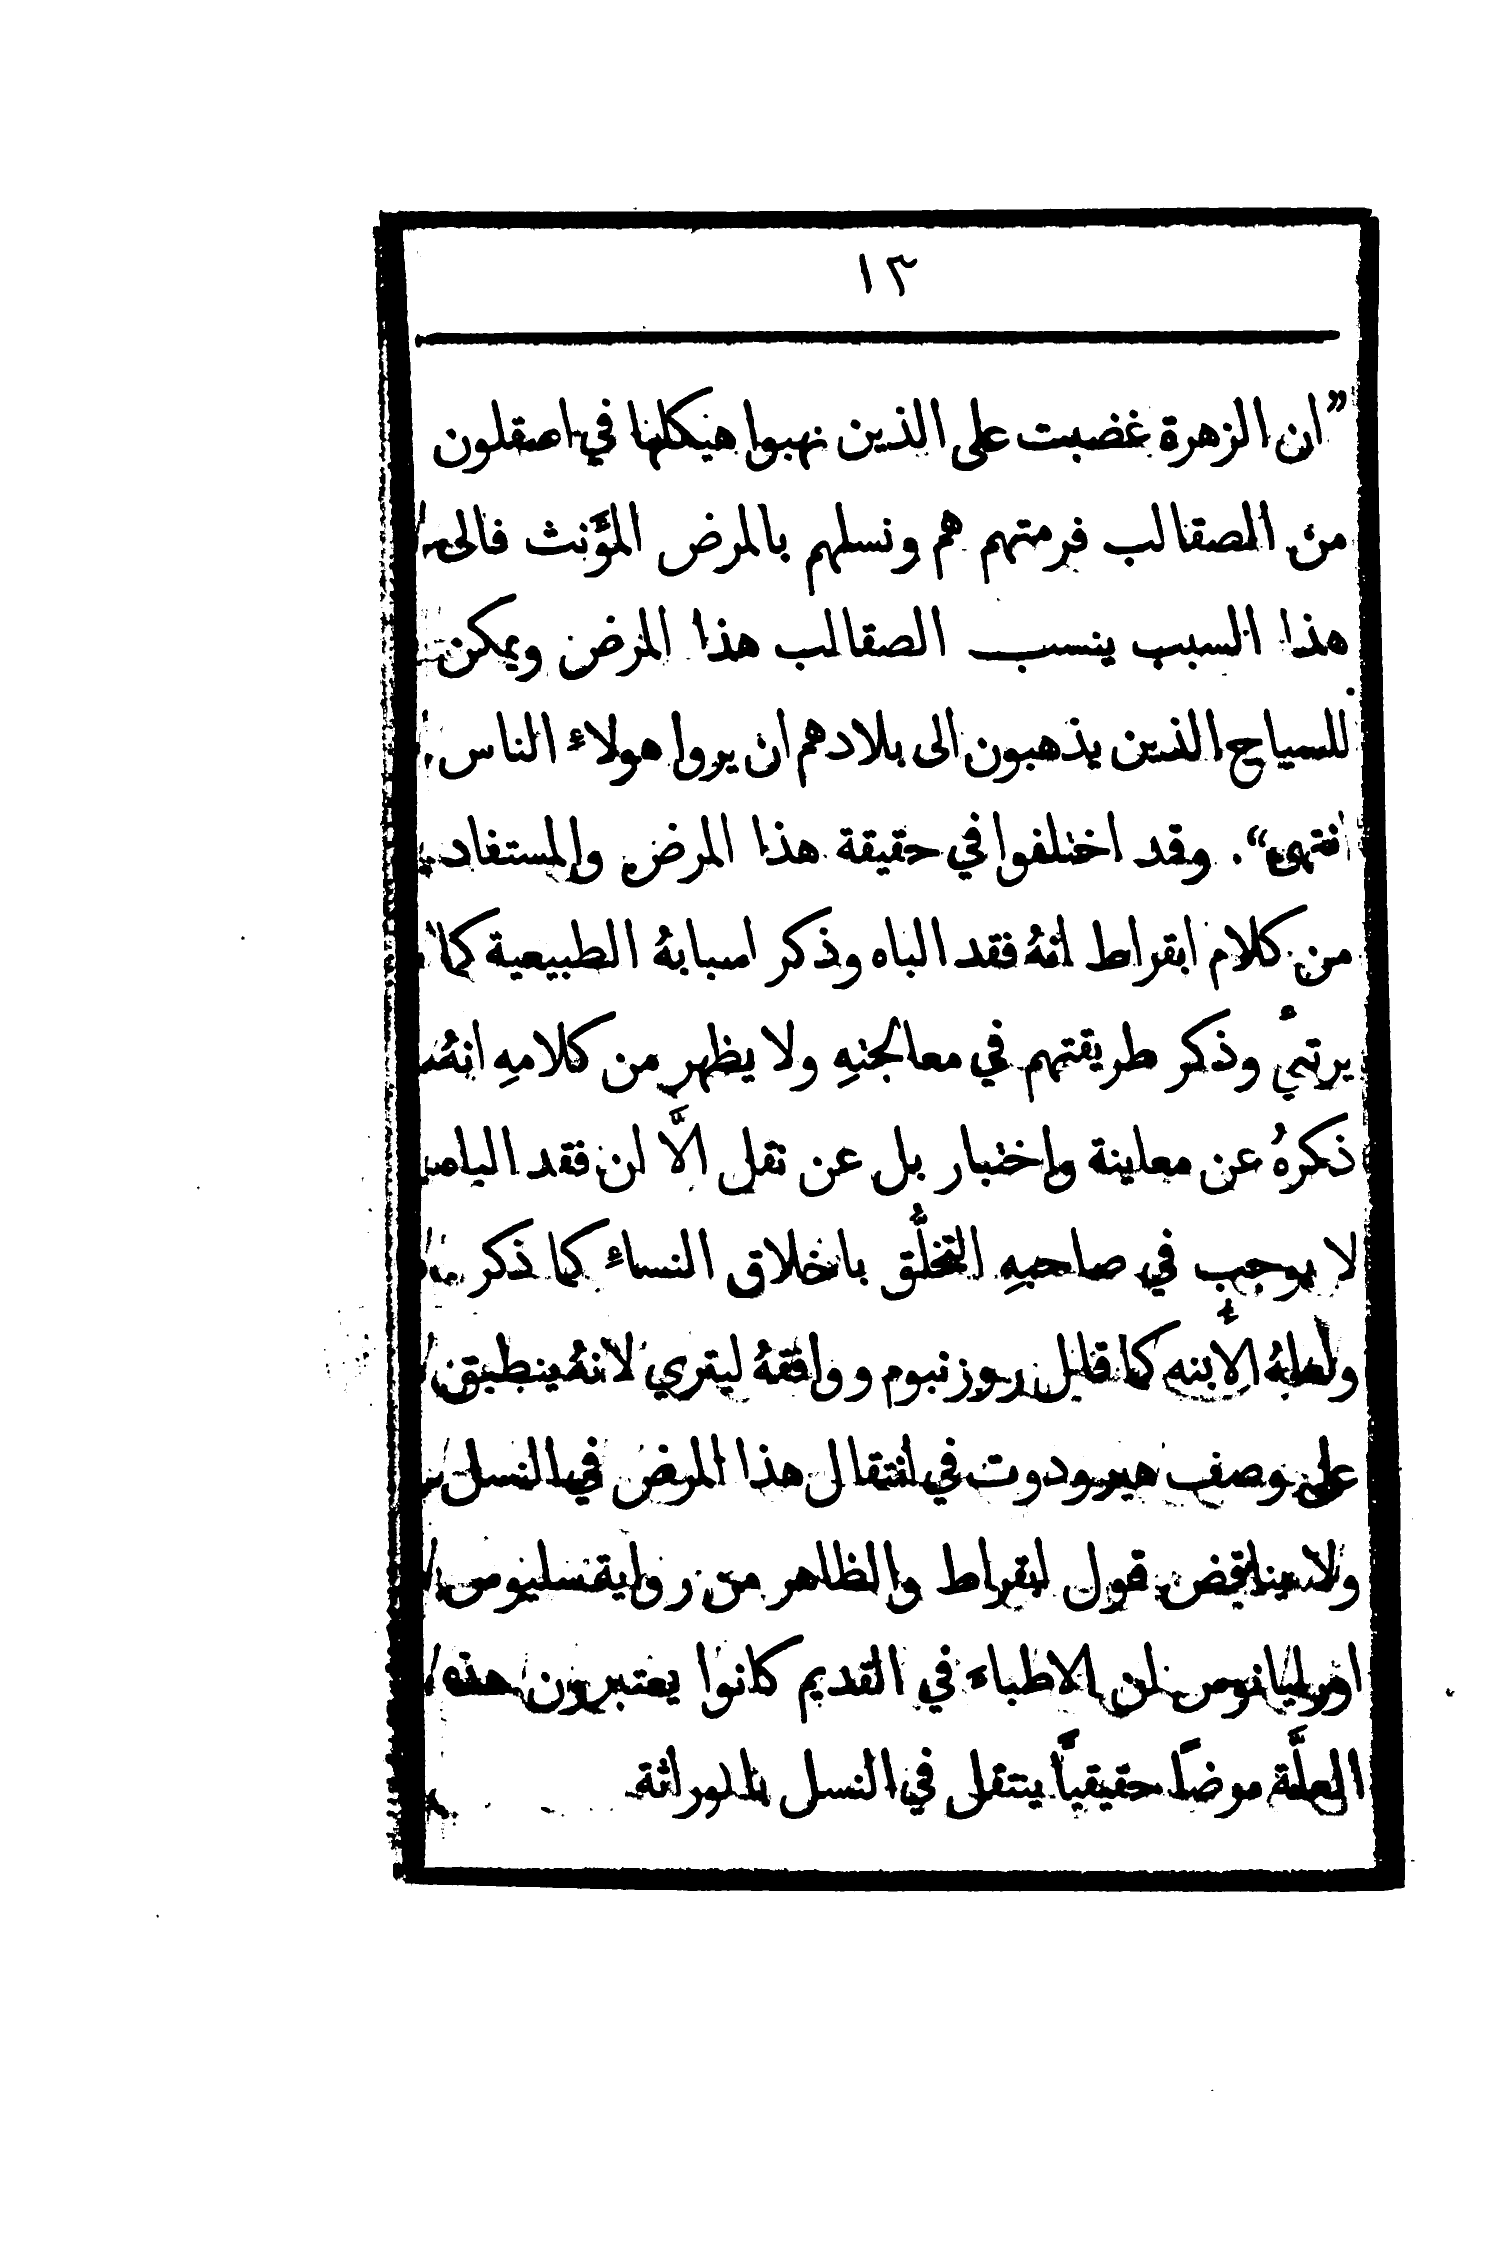 ١٣
”ان الزهرة غضبت على الذين نهبوا هيكلها في اصقلون
من الصقالب فرمتهم هم ونسلهم بالمرض المؤَنث فالى
هذا السبب ينسب الصقالب هذا المرض ويمكن
للسياح الذين يذهبون الى بلادهم ان يروا هولاء الناس
انتهى“. وقد اختلفوا في حقيقة هذا المرض والمستفاد
من كلام ابقراط انهُ فقد الباه وذكر اسبابهُ الطبيعية كما
يرتئي وذكر طريقتهم في معالجتهِ ولا يظهر من كلامهِ انهُ
ذكرهُ عن معاينة واختبار بل عن نقل الَّا ان فقد الباه
لا يوجب في صاحبهِ التخلُّق باخلاق النساء كما ذكر
ولعلهُ الأُبنه كما قال روزنبوم ووافقهُ ليتري لانهُ ينطبق
على وصف هيرودوت في انتقال هذا المرض في النسل
ولا يناقض قول ابقراط والظاهر من رواية سليوس
اورليانوس ان الاطباء في القديم كانوا يعتبرون هذه
العلَّة مرضًا حقيقيًّا ينتقل في النسل بالوراثة